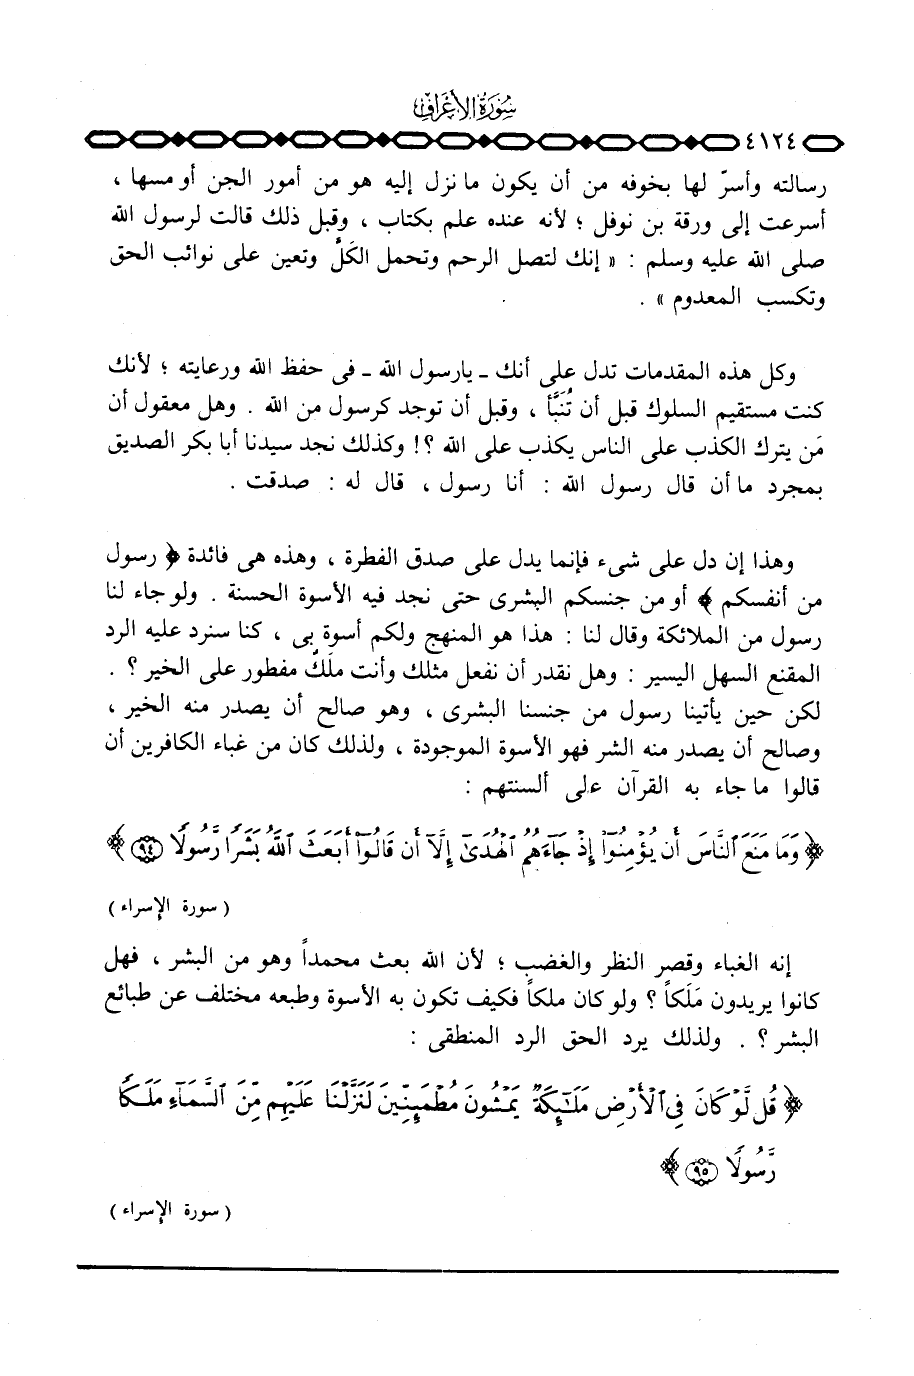 سُورَةُ الأَعْرَافِ
٤١٢٤
رسالته وأسرّ لها بخوفه من أن يكون ما نزل إليه هو من أمور الجن أو مسها ،
أسرعت إلى ورقة بن نوفل ؛ لأنه عنده علم بكتاب ، وقبل ذلك قالت لرسول الله
صلى الله عليه وسلم : « إنك لتصل الرحم وتحمل الكَلَّ وتعين على نوائب الحق
وتكسب المعدوم » .
وكل هذه المقدمات تدل على أنك ـ يارسول الله ـ فى حفظ الله ورعايته ؛ لأنك
كنت مستقيم السلوك قبل أن تُنَبَّأ ، وقبل أن توجد كرسول من الله . وهل معقول أن
مَن يترك الكذب على الناس يكذب على الله ؟! وكذلك نجد سيدنا أبا بكر الصديق
بمجرد ما أن قال رسول الله : أنا رسول ، قال له : صدقت .
وهذا إن دل على شىء فإنما يدل على صدق الفطرة ، وهذه هى فائدة ﴿ رسول
من أنفسكم ﴾ أو من جنسكم البشرى حتى نجد فيه الأسوة الحسنة . ولو جاء لنا
رسول من الملائكة وقال لنا : هذا هو المنهج ولكم أسوة بى ، كنا سنرد عليه الرد
المقنع السهل اليسير : وهل نقدر أن نفعل مثلك وأنت ملَكٌ مفطور على الخير ؟ .
لكن حين يأتينا رسول من جنسنا البشرى ، وهو صالح أن يصدر منه الخير ،
وصالح أن يصدر منه الشر فهو الأسوة الموجودة ، ولذلك كان من غباء الكافرين أن
قالوا ما جاء به القرآن على ألسنتهم :
﴿ وَمَا مَنَعَ ٱلنَّاسَ أَن يُؤْمِنُوٓا۟ إِذْ جَآءَهُمُ ٱلْهُدَىٰٓ إِلَّآ أَن قَالُوٓا۟ أَبَعَثَ ٱللَّهُ بَشَرًا رَّسُولًا ٩٤ ﴾
( سورة الإسراء )
إنه الغباء وقصر النظر والغضب ؛ لأن الله بعث محمداً وهو من البشر ، فهل
كانوا يريدون مَلَكاً ؟ ولو كان ملكاً فكيف تكون به الأسوة وطبعه مختلف عن طبائع
البشر ؟ . ولذلك يرد الحق الرد المنطقى :
﴿ قُل لَّوْ كَانَ فِى ٱلْأَرْضِ مَلَٰٓئِكَةٌ يَمْشُونَ مُطْمَئِنِّينَ لَنَزَّلْنَا عَلَيْهِم مِّنَ ٱلسَّمَآءِ مَلَكًا
رَّسُولًا ٩٥ ﴾
( سورة الإسراء )